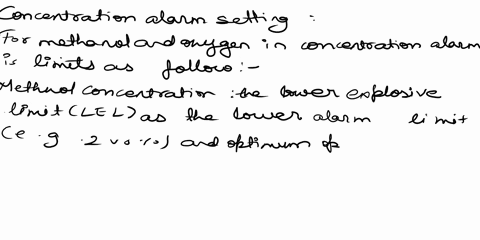 Concentration alarm setting :
For methanol and oxygen in concentration alarm
is limits as follow :-
Methnol concentration : the lower explosive
limit (LEL) as the lower alarm limit
(e.g .2 vo%) and optimum op